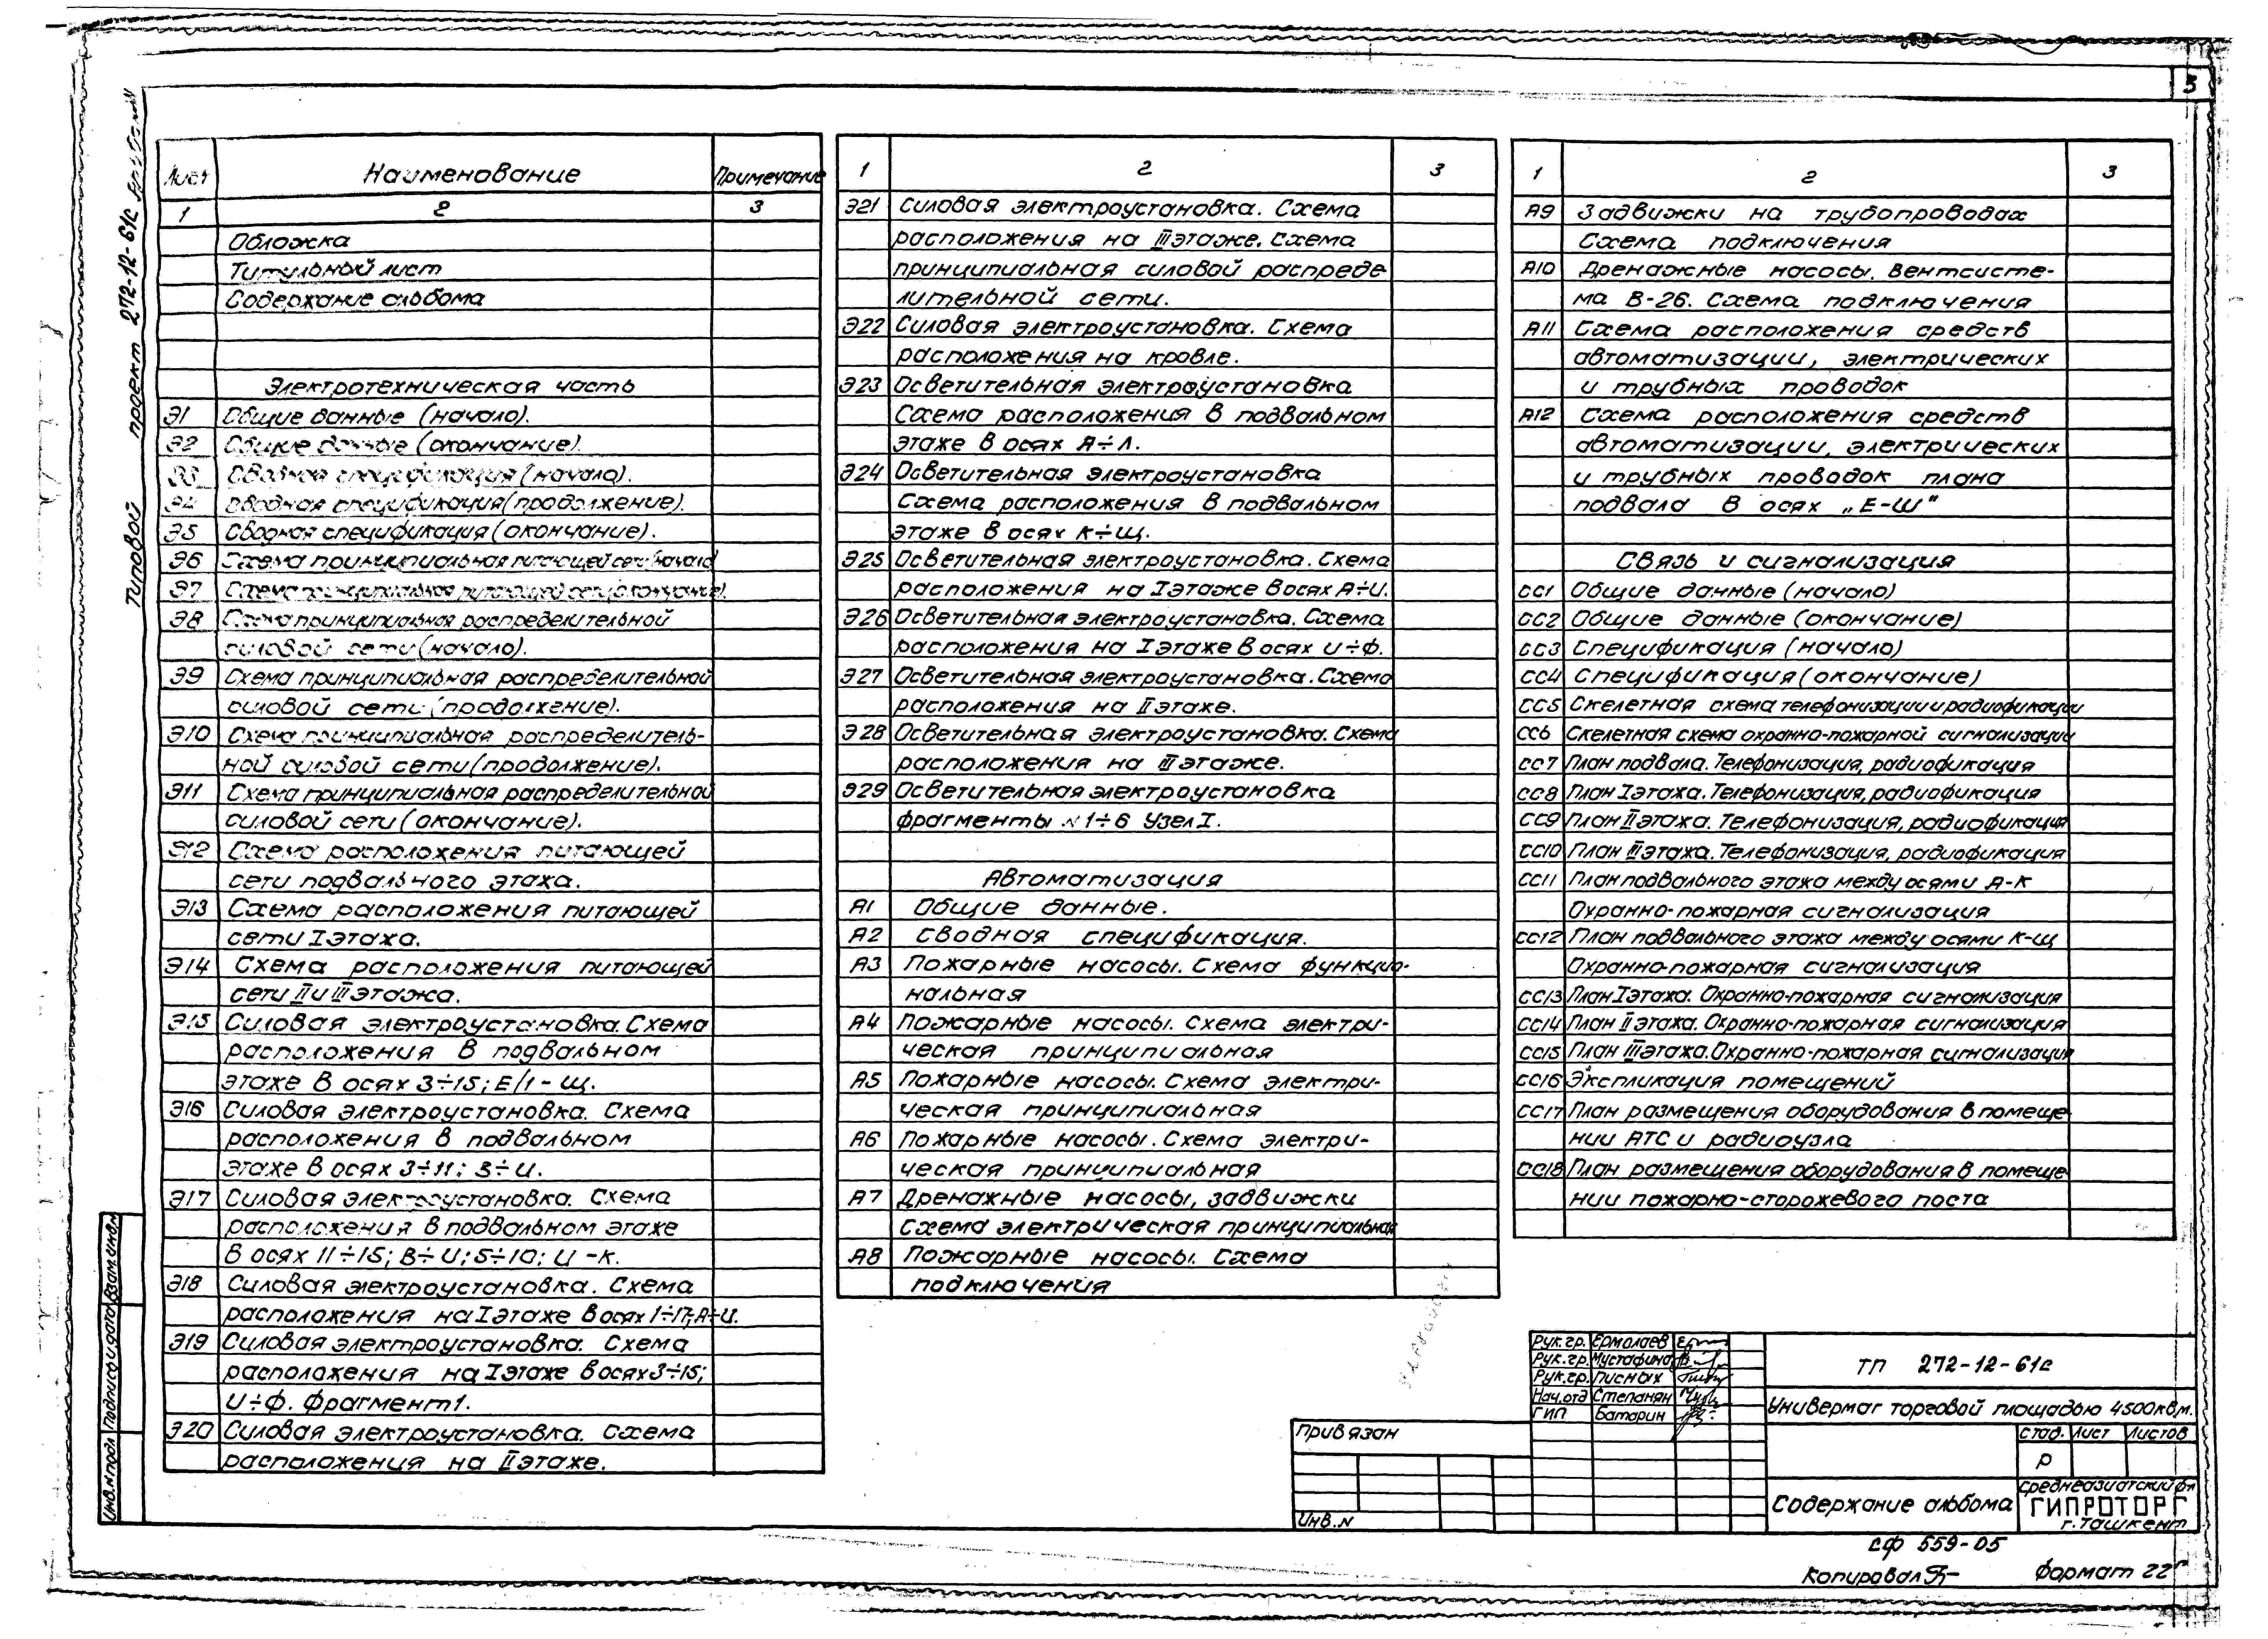 3
Типовой проект 272-12-61с
Лист Наименование Примечание
1 2 3
Обложка
Титульный лист
Содержание альбома
Электротехническая часть
Э1 Общие данные (начало).
Э2 Общие данные (окончание).
Э3 Сводная спецификация (начало).
Э4 Сводная спецификация (продолжение).
Э5 Сводная спецификация (окончание).
Э6 Схема принципиальная питающей сети (начало)
Э7 Схема принципиальная питающей сети (окончание).
Э8 Схема принципиальная распределительной
силовой сети (начало).
Э9 Схема принципиальная распределительной
силовой сети (продолжение).
Э10 Схема принципиальная распределитель-
ной силовой сети (продолжение).
Э11 Схема принципиальная распределительной
силовой сети (окончание).
Э12 Схема расположения питающей
сети подвального этажа.
Э13 Схема расположения питающей
сети I этажа.
Э14 Схема расположения питающей
сети II и III этажа.
Э15 Силовая электроустановка. Схема
расположения в подвальном
этаже в осях 3÷15; Е/1-Щ.
Э16 Силовая электроустановка. Схема
расположения в подвальном
этаже в осях 3÷11; В÷И.
Э17 Силовая электроустановка. Схема
расположения в подвальном этаже
в осях 11÷15; В÷И; 5÷10; И-К.
Э18 Силовая электроустановка. Схема
расположения на I этаже в осях 1÷17; А÷И.
Э19 Силовая электроустановка. Схема
расположения на I этаже в осях 3÷15;
И÷Ф. Фрагмент 1.
Э20 Силовая электроустановка. Схема
расположения на II этаже.
1 2 3
Э21 Силовая электроустановка. Схема
расположения на III этаже. Схема
принципиальная силовой распреде-
лительной сети.
Э22 Силовая электроустановка. Схема
расположения на кровле.
Э23 Осветительная электроустановка
Схема расположения в подвальном
этаже в осях А÷Л.
Э24 Осветительная электроустановка
Схема расположения в подвальном
этаже в осях К÷Щ.
Э25 Осветительная электроустановка. Схема
расположения на I этаже в осях А÷И.
Э26 Осветительная электроустановка. Схема
расположения на I этаже в осях И÷Ф.
Э27 Осветительная электроустановка. Схема
расположения на II этаже.
Э28 Осветительная электроустановка. Схема
расположения на III этаже.
Э29 Осветительная электроустановка
фрагменты N 1÷6 Узел I.
Автоматизация
А1 Общие данные.
А2 Сводная спецификация.
А3 Пожарные насосы. Схема функцио-
нальная
А4 Пожарные насосы. Схема электри-
ческая принципиальная
А5 Пожарные насосы. Схема электри-
ческая принципиальная
А6 Пожарные насосы. Схема электри-
ческая принципиальная
А7 Дренажные насосы, задвижки
Схема электрическая принципиальная
А8 Пожарные насосы. Схема
подключения
1 2 3
А9 Задвижки на трубопроводах
Схема подключения
А10 Дренажные насосы. Вентсисте-
ма В-26. Схема подключения
А11 Схема расположения средств
автоматизации, электрических
и трубных проводок
А12 Схема расположения средств
автоматизации, электрических
и трубных проводок плана
подвала в осях „Е-Ш"
Связь и сигнализация
СС1 Общие данные (начало)
СС2 Общие данные (окончание)
СС3 Спецификация (начало)
СС4 Спецификация (окончание)
СС5 Скелетная схема телефонизации и радиофикации
СС6 Скелетная схема охранно-пожарной сигнализации
СС7 План подвала. Телефонизация, радиофикация
СС8 План I этажа. Телефонизация, радиофикация
СС9 План II этажа. Телефонизация, радиофикация
СС10 План III этажа. Телефонизация, радиофикация
СС11 План подвального этажа между осями А-К
Охранно-пожарная сигнализация
СС12 План подвального этажа между осями К-Щ
Охранно-пожарная сигнализация
СС13 План I этажа. Охранно-пожарная сигнализация
СС14 План II этажа. Охранно-пожарная сигнализация
СС15 План III этажа. Охранно-пожарная сигнализация
СС16 Экспликация помещений
СС17 План размещения оборудования в помеще
нии АТС и радиоузла
СС18 План размещения оборудования в помеще
нии пожарно-сторожевого поста
Инв.N подл. Подпись и дата Взам.инв.N
Рук.гр. Ермолаев
Рук.гр. Мустафина
Рук.гр. Писных
Нач.отд Степанян
ГИП Батарин
ТП 272-12-61с
Универмаг торговой площадью 4500кв.м.
Привязан
Инв.N
Стад. Лист Листов
Р
Содержание альбома
Среднеазиатский фл
ГИПРОТОРГ
г. Ташкент
СФ 559-05
Копировал Формат 22Г